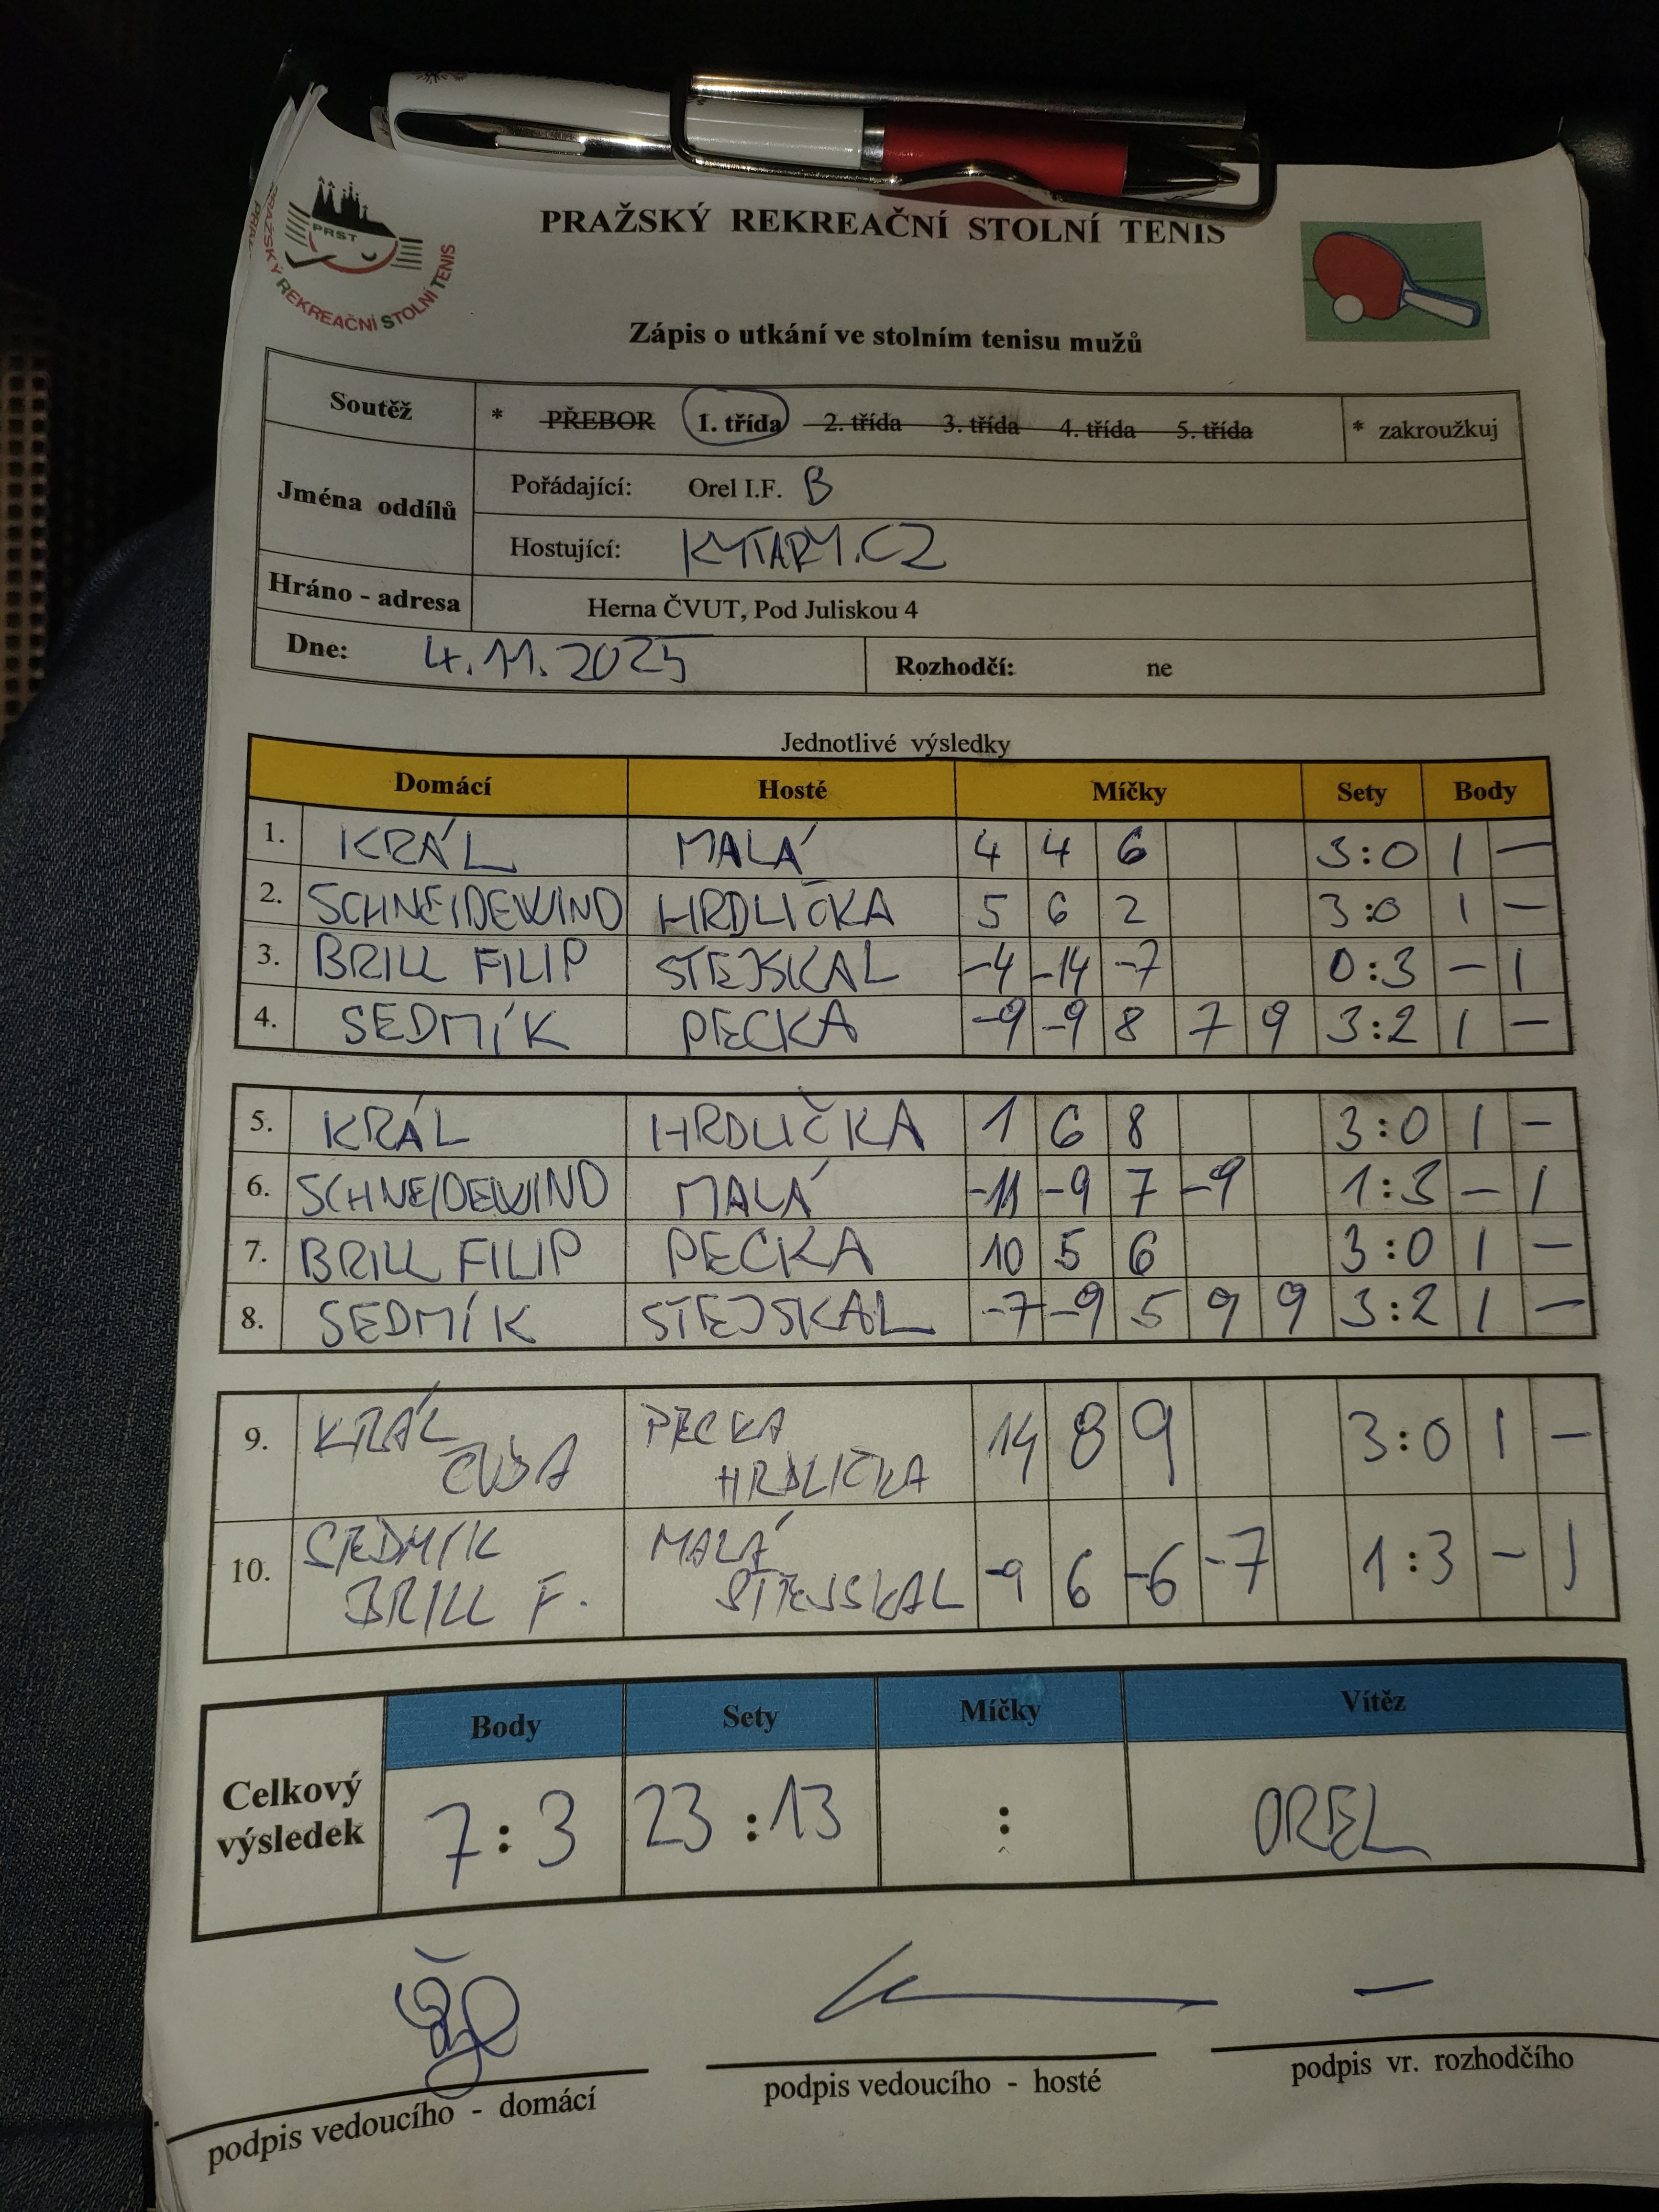 PRAŽSKÝ REKREAČNÍ STOLNÍ TENIS
PRST
PRAŽSKÝ REKREAČNÍ STOLNÍ TENIS
Zápis o utkání ve stolním tenisu mužů
Soutěž * PŘEBOR 1. třída 2. třída 3. třída 4. třída 5. třída * zakroužkuj
Jména oddílů
Pořádající: Orel I.F. B
Hostující: KYTARY.CZ
Hráno - adresa Herna ČVUT, Pod Juliskou 4
Dne: 4.11.2025 Rozhodčí: ne
Jednotlivé výsledky
Domácí Hosté Míčky Sety Body
1. KRÁL MALÁ 4 4 6 3:0 1 –
2. SCHNEIDEWIND HRDLIČKA 5 6 2 3:0 1 –
3. BRILL FILIP STEJSKAL -4 -14 -7 0:3 – 1
4. SEDMÍK PECKA -9 -9 8 7 9 3:2 1 –
5. KRÁL HRDLIČKA 1 6 8 3:0 1 –
6. SCHNEIDEWIND MALÁ -11 -9 7 -9 1:3 – 1
7. BRILL FILIP PECKA 10 5 6 3:0 1 –
8. SEDMÍK STEJSKAL -7 -9 5 9 9 3:2 1 –
9. KRÁL PECKA 14 8 9 3:0 1 –
HRDLIČKA
10. SEDMÍK MALÁ -9 6 -6 -7 1:3 – 1
BRILL F. STEJSKAL
Body Sety Míčky Vítěz
Celkový výsledek 7:3 23:13 : OREL
podpis vedoucího - domácí
podpis vedoucího - hosté
podpis vr. rozhodčího